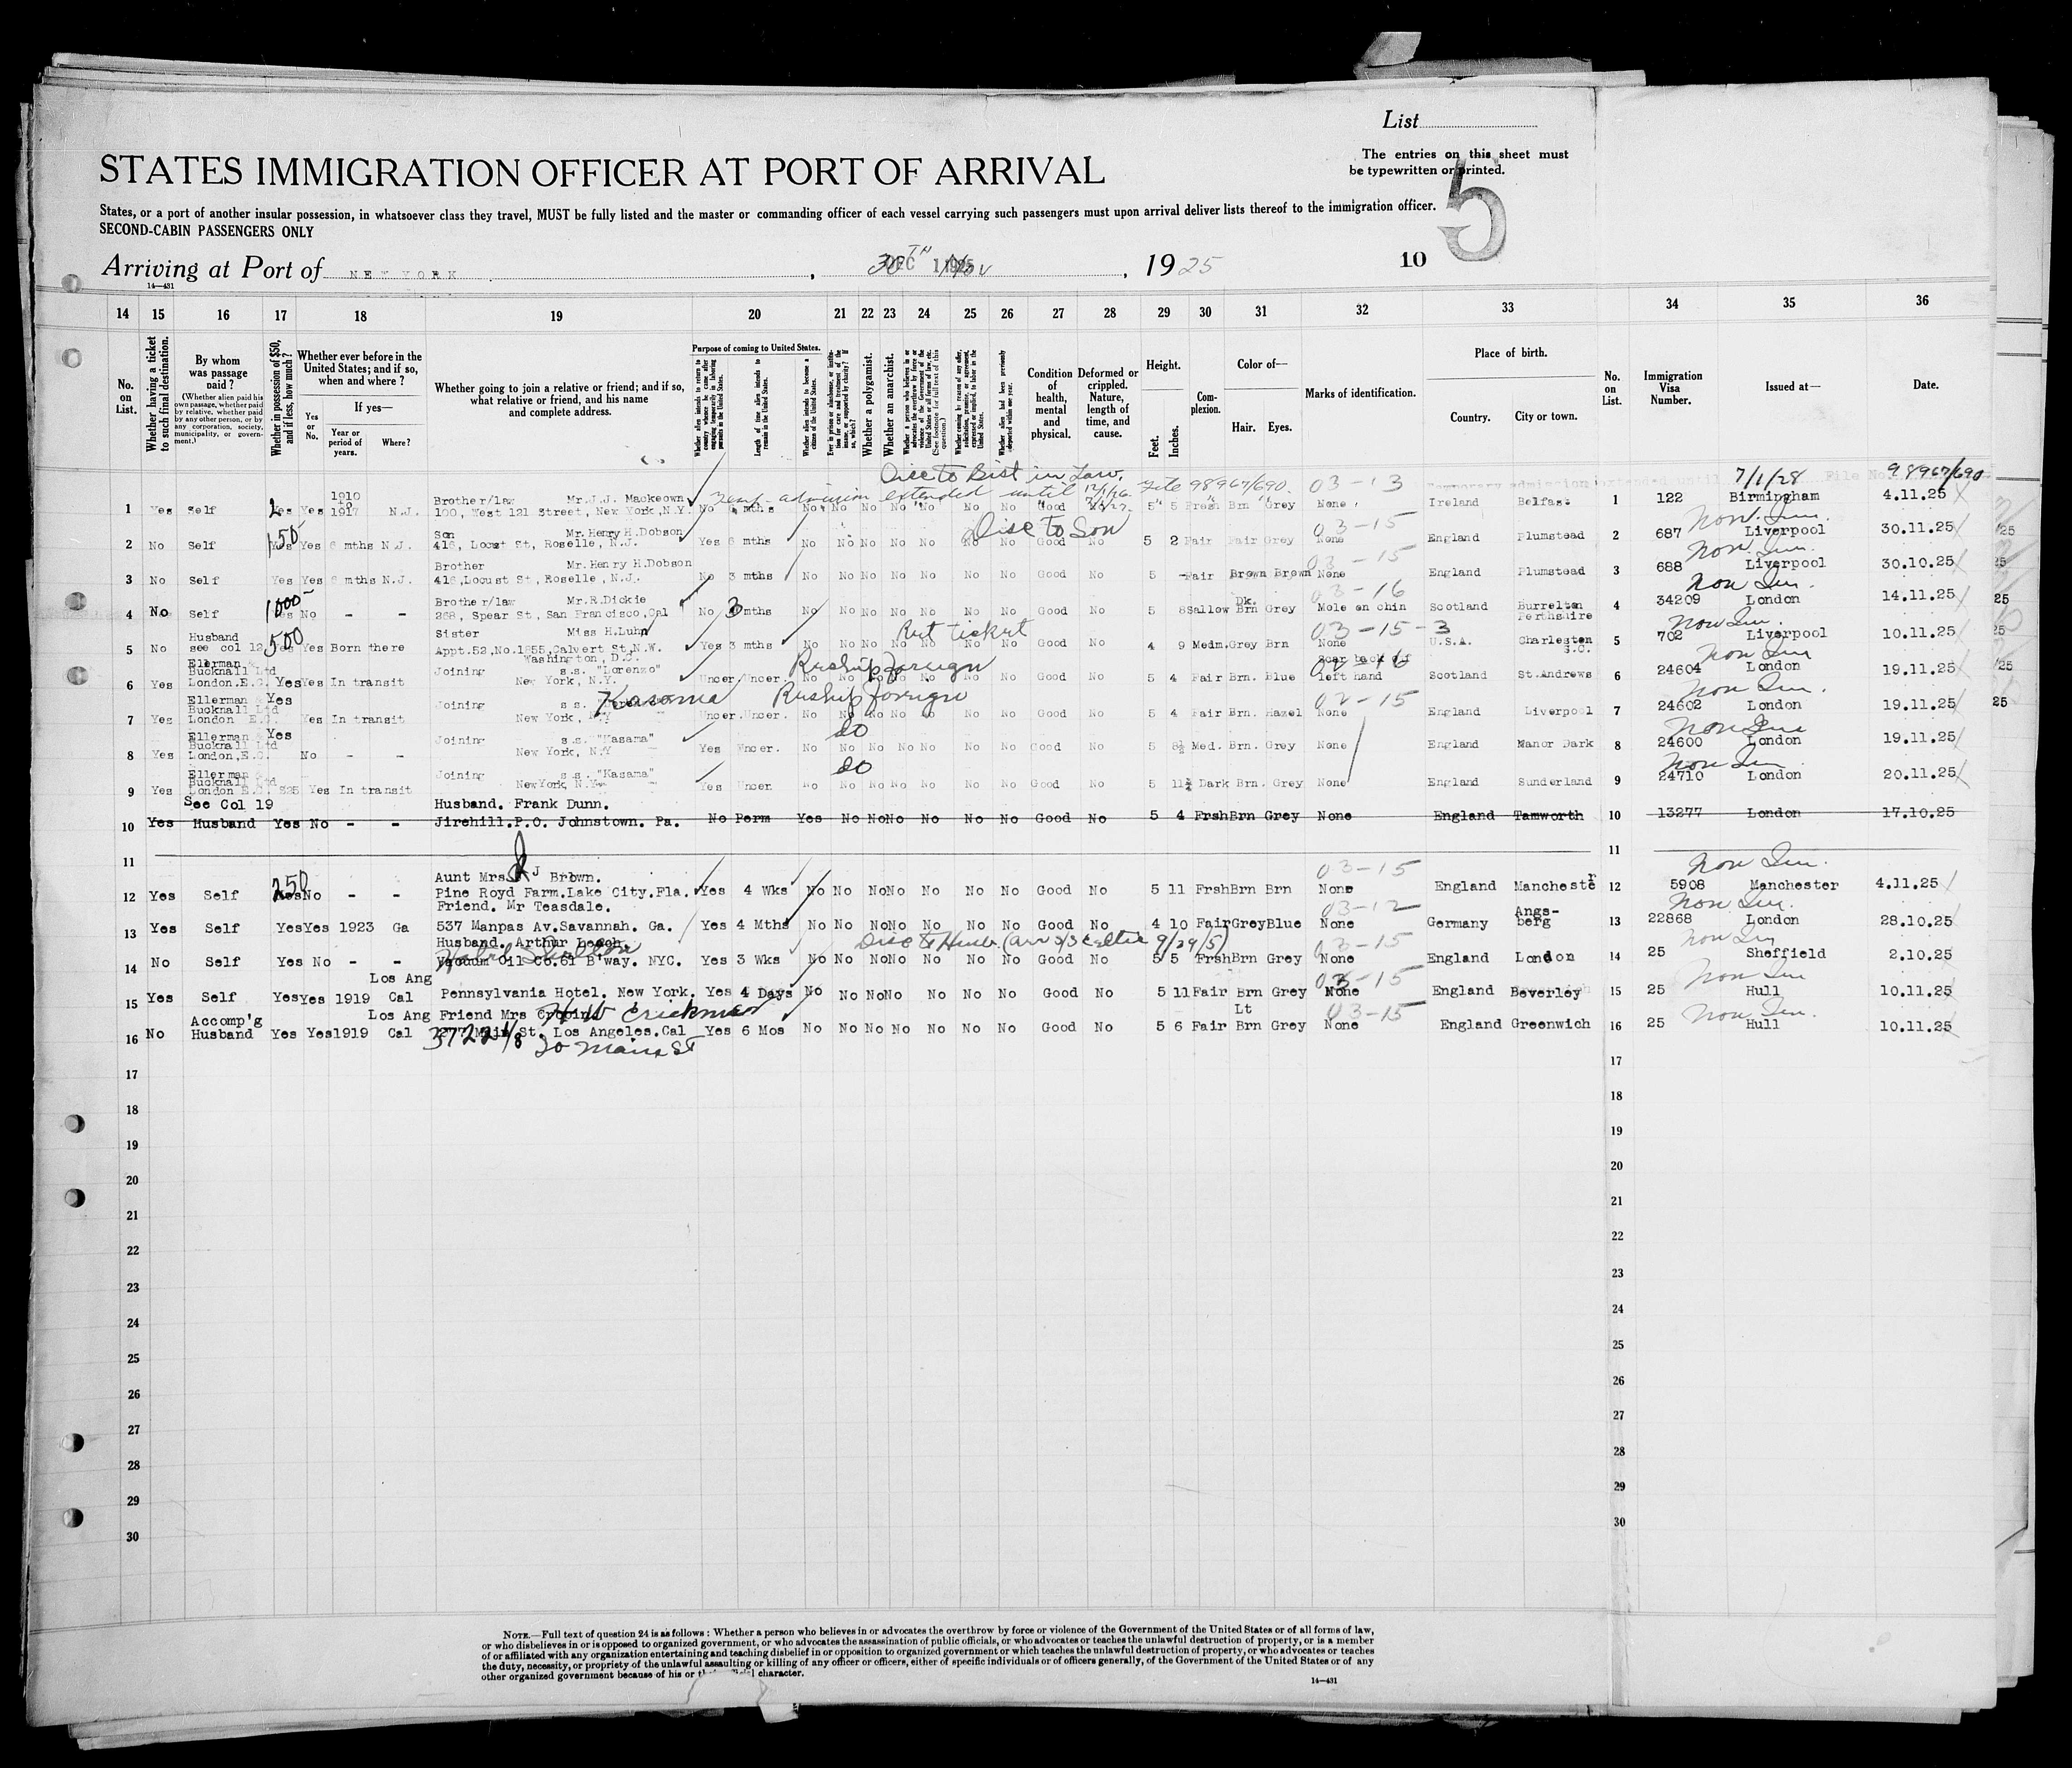 List
The entries on this sheet must
be typewritten or printed.
5
STATES IMMIGRATION OFFICER AT PORT OF ARRIVAL
States, or a port of another insular possession, in whatsoever class they travel, MUST be fully listed and the master or commanding officer of each vessel carrying such passengers must upon arrival deliver lists thereof to the immigration officer.
SECOND-CABIN PASSENGERS ONLY
Arriving at Port of NEW YORK, 30TH Nov, 1925 10
14—431
14 15 16 17 18 19 20 21 22 23 24 25 26 27 28 29 30 31 32 33 34 35 36
No. on List.
Whether having a ticket to such final destination.
By whom was passage paid?
(Whether alien paid his own passage, whether paid by relative, whether paid by any other person, or by any corporation, society, municipality, or government.)
Whether in possession of $50, and if less, how much?
Whether ever before in the United States; and if so, when and where?
Yes or No.
If yes—
Year or period of years.
Where?
Whether going to join a relative or friend; and if so, what relative or friend, and his name and complete address.
Purpose of coming to United States.
Whether alien intends to return to country whence he came after engaging temporarily in laboring pursuits in the United States.
Length of time alien intends to remain in the United States.
Whether alien intends to become a citizen of the United States.
Whether a polygamist.
Whether an anarchist.
Condition of health, mental and physical.
Deformed or crippled. Nature, length of time, and cause.
Height.
Feet. Inches.
Complexion.
Color of—
Hair. Eyes.
Marks of identification.
Place of birth.
Country. City or town.
No. on List.
Immigration Visa Number.
Issued at—
Date.
Disc to Sist in Law. 7/1/28 File No. 98967/690
Temp admission extended until 12/1/26 File 98967/690. 03-13
1 Yes Self Yes Yes 1910 to 1917 N.J. Brother/law Mr.J.J. Mackeown 100, West 121 Street, New York, N.Y. No 6 mths No No No No No No No Good 5 5 Fresh Brn Grey None Ireland Belfast 1 122 Birmingham 4.11.25
Disc to Son 03-15 Non Im.
2 No Self 150 Yes Yes 6 mths N.J. Son Mr.Henry H.Dobson 416, Locust St, Roselle, N.J. Yes 6 mths No No No No No No No Good No 5 2 Fair Fair Grey None England Plumstead 2 687 Liverpool 30.11.25
03-15 Non Im.
3 No Self Yes Yes 6 mths N.J. Brother Mr.Henry H.Dobson 416, Locust St, Roselle, N.J. No 3 mths No No No No No No No Good No 5 - Fair Brown Brown None England Plumstead 3 688 Liverpool 30.10.25
03-16 Non Im.
4 No Self 1000 Yes No - - Brother/law Mr.R.Dickie 268, Spear St, San Francisco, Cal No 3 mths No No No No No No No Good No 5 8 Sallow Dk. Brn Grey Mole on chin Scotland Burrelton Perthshire 4 34209 London 14.11.25
Ret ticket 03-15-3 Non Im.
5 No Husband see col 12 500 Yes Yes Born there Sister Miss H.Luhn Appt.52, No.1855, Calvert St, N.W. Washington, D.C. Yes 3 mths No No No No No No No Good No 4 9 Medm. Grey Brn None U.S.A. Charleston S.C. 5 702 Liverpool 10.11.25
Reship Foreign 02-16 Non Im
6 Yes Ellerman Bucknall Ltd London.E.C. Yes Yes In transit Joining s.s. "Lorenzo" New York, N.Y. Uncer. Uncer. No No No No No No No Good No 5 4 Fair Brn. Blue Scar back of left hand Scotland St.Andrews 6 24604 London 19.11.25
Kasama Reship Foreign 02-15 Non Im.
7 Yes Ellerman Bucknall Ltd London E.C. Yes Yes In transit Joining s.s. New York, N.Y Uncer. Uncer. No No No No No No No Good No 5 4 Fair Brn. Hazel None England Liverpool 7 24602 London 19.11.25
do Non Im
8 Yes Ellerman Bucknall Ltd London, E.C. Yes No - - Joining s.s. "Kasama" New York, N.Y Yes Uncer. No No No No No No No Good No 5 8½ Med. Brn. Grey None England Manor Dark 8 24600 London 19.11.25
do Non Im
9 Yes Ellerman Bucknall Ltd London E.C. $25 Yes In transit Joining s.s. "Kasama" New York, N.Y. Yes Uncer No No No No No No No Good No 5 11½ Dark Brn. Grey None England Sunderland 9 24710 London 20.11.25
10 Yes See Col 19 Husband Yes No - - Husband. Frank Dunn. Jirehill.P.O. Johnstown. Pa. No Perm Yes No No No No No No Good No 5 4 Frsh Brn Grey None England Tamworth 10 13277 London 17.10.25
11 11
03-15 Non Im.
12 Yes Self 250 Yes No - - Aunt Mrs J Brown. Pine Royd Farm.Lake City.Fla. Yes 4 Wks No No No No No No No Good No 5 11 Frsh Brn Brn None England Manchester 12 5908 Manchester 4.11.25
03-12 Non Im.
13 Yes Self Yes Yes 1923 Ga Friend. Mr Teasdale. 537 Manpas Av.Savannah. Ga. Yes 4 Mths No No No No No No No Good No 4 10 Fair Grey Blue None Germany Angsberg 13 22868 London 28.10.25
Disc to Husb. (arr s/s Celtic 9/29/5) 03-15 Non Im
14 No Self Yes No - - Husband. Arthur Leech. Vacuum Oil Co.61 B'way. NYC. Yes 3 Wks No No No No No No No Good No 5 5 Frsh Brn Grey None England London 14 25 Sheffield 2.10.25
03-15 Non Im
15 Yes Self Yes Yes 1919 Los Ang Cal Pennsylvania Hotel. New York. Yes 4 Days No No No No No No No Good No 5 11 Fair Brn Grey None England Beverley 15 25 Hull 10.11.25
H W Erickman 03-15 Non Im.
16 No Accomp'g Husband Yes Yes 1919 Los Ang Cal Friend Mrs Main St. Los Angeles.Cal Yes 6 Mos No No No No No No No Good No 5 6 Fair Lt Brn Grey None England Greenwich 16 25 Hull 10.11.25
3722 1/8 So Main ST
17 17
18 18
19 19
20 20
21 21
22 22
23 23
24 24
25 25
26 26
27 27
28 28
29 29
30 30
NOTE.—Full text of question 24 is as follows: Whether a person who believes in or advocates the overthrow by force or violence of the Government of the United States or of all forms of law,
or who disbelieves in or is opposed to organized government, or who advocates the assassination of public officials, or who advocates or teaches the unlawful destruction of property, or is a member
of or affiliated with any organization entertaining and teaching disbelief in or opposition to organized government or which teaches the unlawful destruction of property, or who advocates or teaches
the duty, necessity, or propriety of the unlawful assaulting or killing of any officer or officers, either of specific individuals or of officers generally, of the Government of the United States or of any
other organized government because of his or character.
14—431